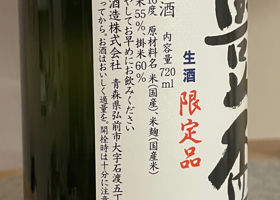 豊盃
生酒
限定品
酒
内容量720ml
度 原材料名 米(国産)、米麹(国産米)
米55%、掛米60%
やしてお早めにお飲みください
酒造株式会社 青森県弘前市大字石渡五丁
ってから。お酒はおいしく適量を。開栓時は十分に注意